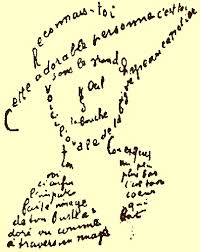 Reconnais-toi
Cette adorable personne c'est toi
sous le grand chapeau canotier
Oeil
la bouche
Voici l'ovale de ta figure
ton
cou exquis
voici enfin
l'impar
faite image
de ton buste a
doré vu comme
à travers un nuage
un peu
plus bas
c'est ton
coeur
qui
bat